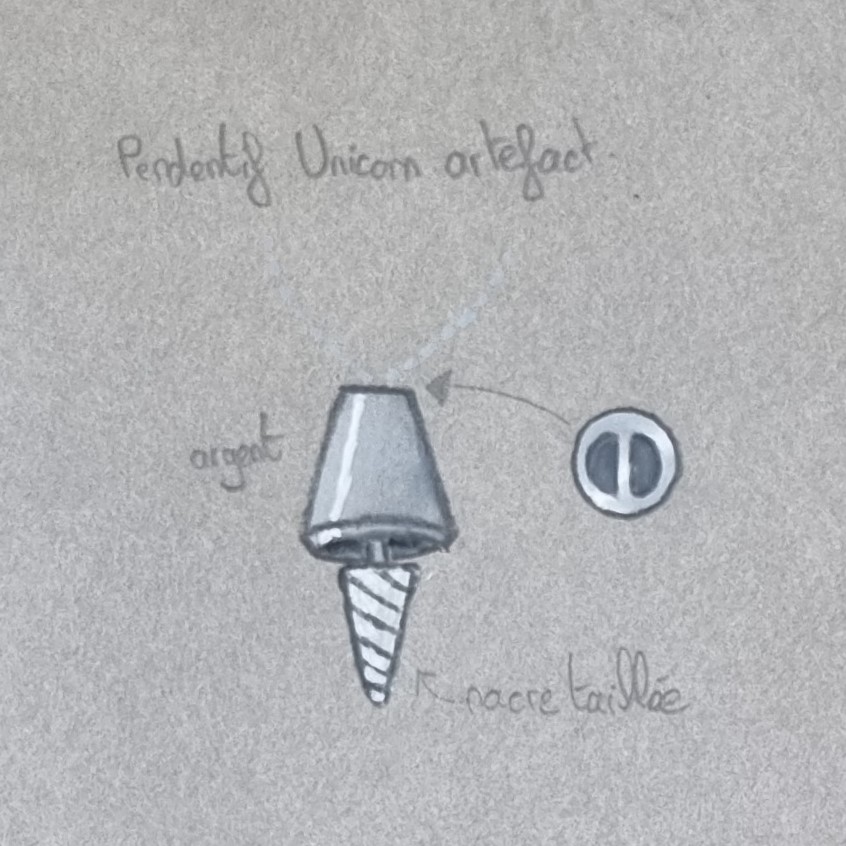 Pendentif Unicorn artefact.
argent
nacre taillée